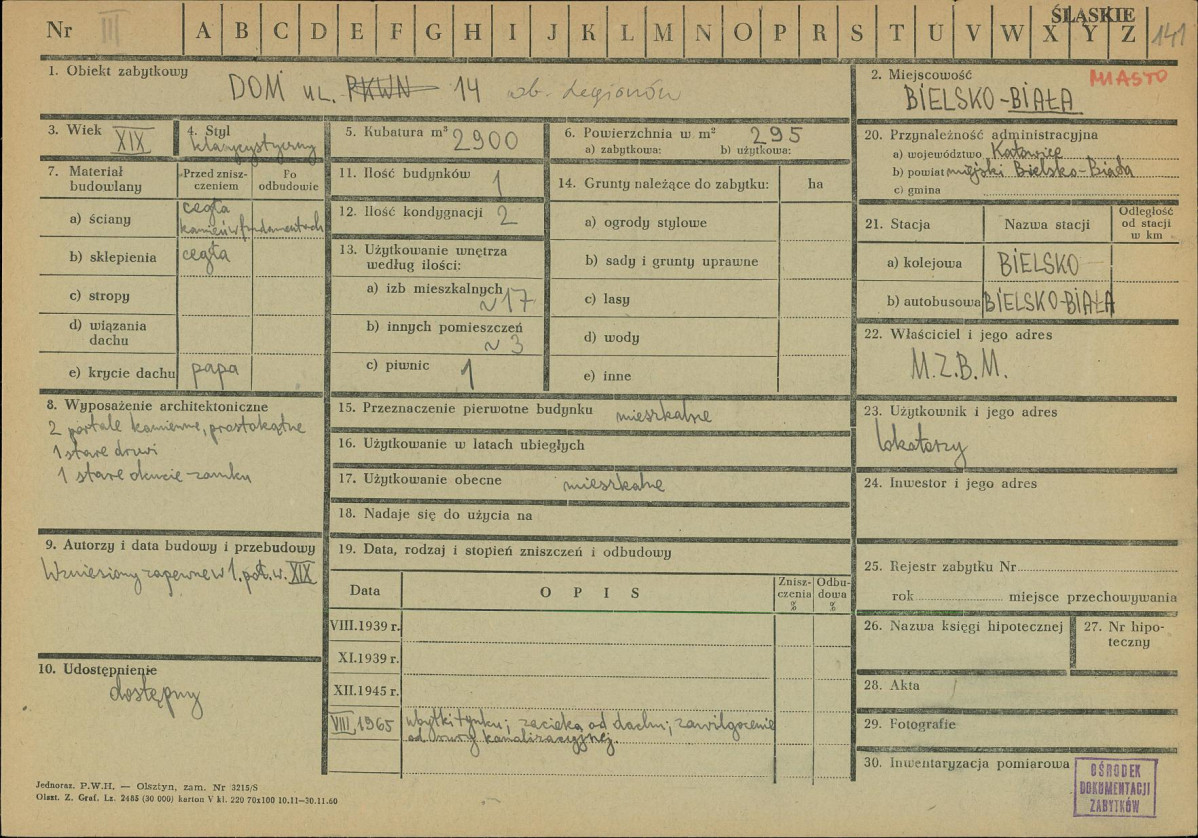 Nr III A B C D E F G H I J K L M N O P R S T U V W X Y Z ŚLĄSKIE 141
1. Obiekt zabytkowy
DOM ul. PKWN 14 ob. Legionów
2. Miejscowość MIASTO
BIELSKO-BIAŁA
3. Wiek XIX
4. Styl
klasycystyczny
5. Kubatura m³ 2900
6. Powierzchnia w m² 295
a) zabytkowa: b) użytkowa:
20. Przynależność administracyjna
a) województwo Katowice
b) powiat miejski Bielsko-Biała
c) gmina
7. Materiał budowlany
Przed znisz-
czeniem
Po
odbudowie
a) ściany cegła
kamień w fundamentach
b) sklepienia cegła
c) stropy
d) wiązania
dachu
e) krycie dachu papa
11. Ilość budynków 1
12. Ilość kondygnacji 2
13. Użytkowanie wnętrza
według ilości:
a) izb mieszkalnych
~17
b) innych pomieszczeń
~3
c) piwnic 1
14. Grunty należące do zabytku: ha
a) ogrody stylowe
b) sady i grunty uprawne
c) lasy
d) wody
e) inne
21. Stacja Nazwa stacji
Odległość
od stacji
w km
a) kolejowa BIELSKO
b) autobusowa BIELSKO-BIAŁA
22. Właściciel i jego adres
M.Z.B.M.
8. Wyposażenie architektoniczne
2 portale kamienne, prostokątne
1 stare drzwi
1 stare okucie zamku
15. Przeznaczenie pierwotne budynku mieszkalne
16. Użytkowanie w latach ubiegłych
17. Użytkowanie obecne mieszkalne
18. Nadaje się do użycia na
23. Użytkownik i jego adres
lokatorzy
24. Inwestor i jego adres
9. Autorzy i data budowy i przebudowy
Wzniesiony zapewne w 1. poł. w. XIX
10. Udostępnienie
dostępny
19. Data, rodzaj i stopień zniszczeń i odbudowy
Data OPIS
Znisz-
czenia
%
Odbu-
dowa
%
VIII.1939 r.
XI.1939 r.
XII.1945 r.
VIII.1965 ubytki tynku; zacieki od dachu; zawilgocenie
od rury kanalizacyjnej.
25. Rejestr zabytku Nr
rok miejsce przechowywania
26. Nazwa księgi hipotecznej
27. Nr hipo-
teczny
28. Akta
29. Fotografie
30. Inwentaryzacja pomiarowa
OŚRODEK
DOKUMENTACJI
ZABYTKÓW
Jednoraz. P.W.H. — Olsztyn, zam. Nr 3215/S
Olszt. Z. Graf. Lz. 2485 (30 000) karton V kl. 220 70x100 10.11—30.11.60